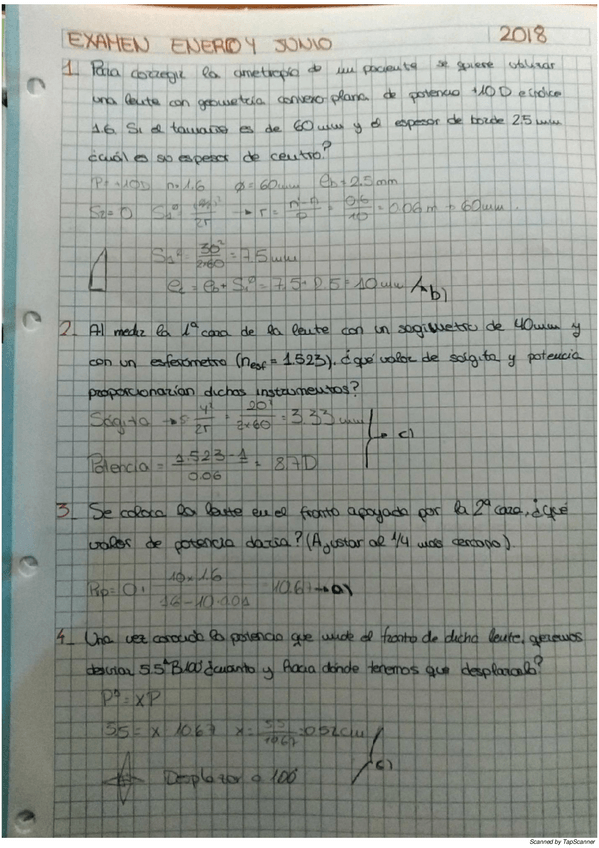 EXAMEN ENERO Y JUNIO 2018
1. Para corregir la ametropía de un paciente se quiere utilizar
una lente con geometría convexo-plana de potencia +10D e índice
1.6. Si el tamaño es de 60mm y el espesor de borde 2.5mm
¿cuál es su espesor de centro?
P= +10D n=1.6 ø=60mm eb=2.5mm
S2=0 S1= r = n'-n/P = 0.6/10 = 0.06m → 60mm.
S1= 30²/2×60 = 7.5mm
ec = eb + S1 = 7.5+2.5 = 10mm b)
2. Al medir la 1ª cara de la lente con un sagímetro de 40mm y
con un esferómetro (nesf = 1.523). ¿qué valor de ságita y potencia
proporcionarían dichos instrumentos?
Ságita → s y²/2r = 20²/2×60 = 3.33mm
c)
Potencia = 1.523-1/0.06 = 8.7D
3. Se coloca la lente en el fronto apoyada por la 2ª cara, ¿qué
valor de potencia daría? (Ajustar al 1/4 más cercano).
10×1.6/1.6-10·0.01 = 10.67 → a)
4. Una vez conocida la potencia que mide el fronto de dicha lente, queremos
5.5 B100 ¿cuanto y hacia dónde tenemos que desplazarlo?
P = xP
5.5 = x 10.67 x = 5.5/10.67 = 0.52cm
c)
Desplazar a 100
Scanned by TapScanner